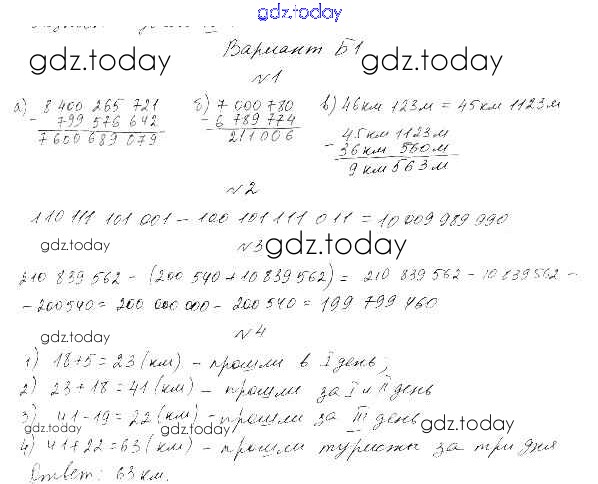 gdz.today
Вариант Б1
gdz.today gdz.today
№1
а) 8 400 265 721 б) 7 000 780 в) 46км 123м = 45км 1123м
- 799 576 642 - 6 789 774 45км 1123м
7 600 689 079 211 006 - 36км 560м
9км 563м
№2
110 111 101 001 - 100 101 111 011 = 10 009 989 990
gdz.today №3 gdz.today
210 839 562 - (200 540 + 10 839 562) = 210 839 562 - 10 839 562 -
- 200540 = 200 000 000 - 200 540 = 199 799 460
gdz.today №4
1) 18+5=23 (км) - прошли в I день;
2) 23+18=41 (км) - прошли за I и II день
3) 41-19=22 (км) - прошли за III день
gdz.today gdz.today gdz.today
4) 41+22=63 (км) - прошли туристы за три дня
Ответ: 63 км.